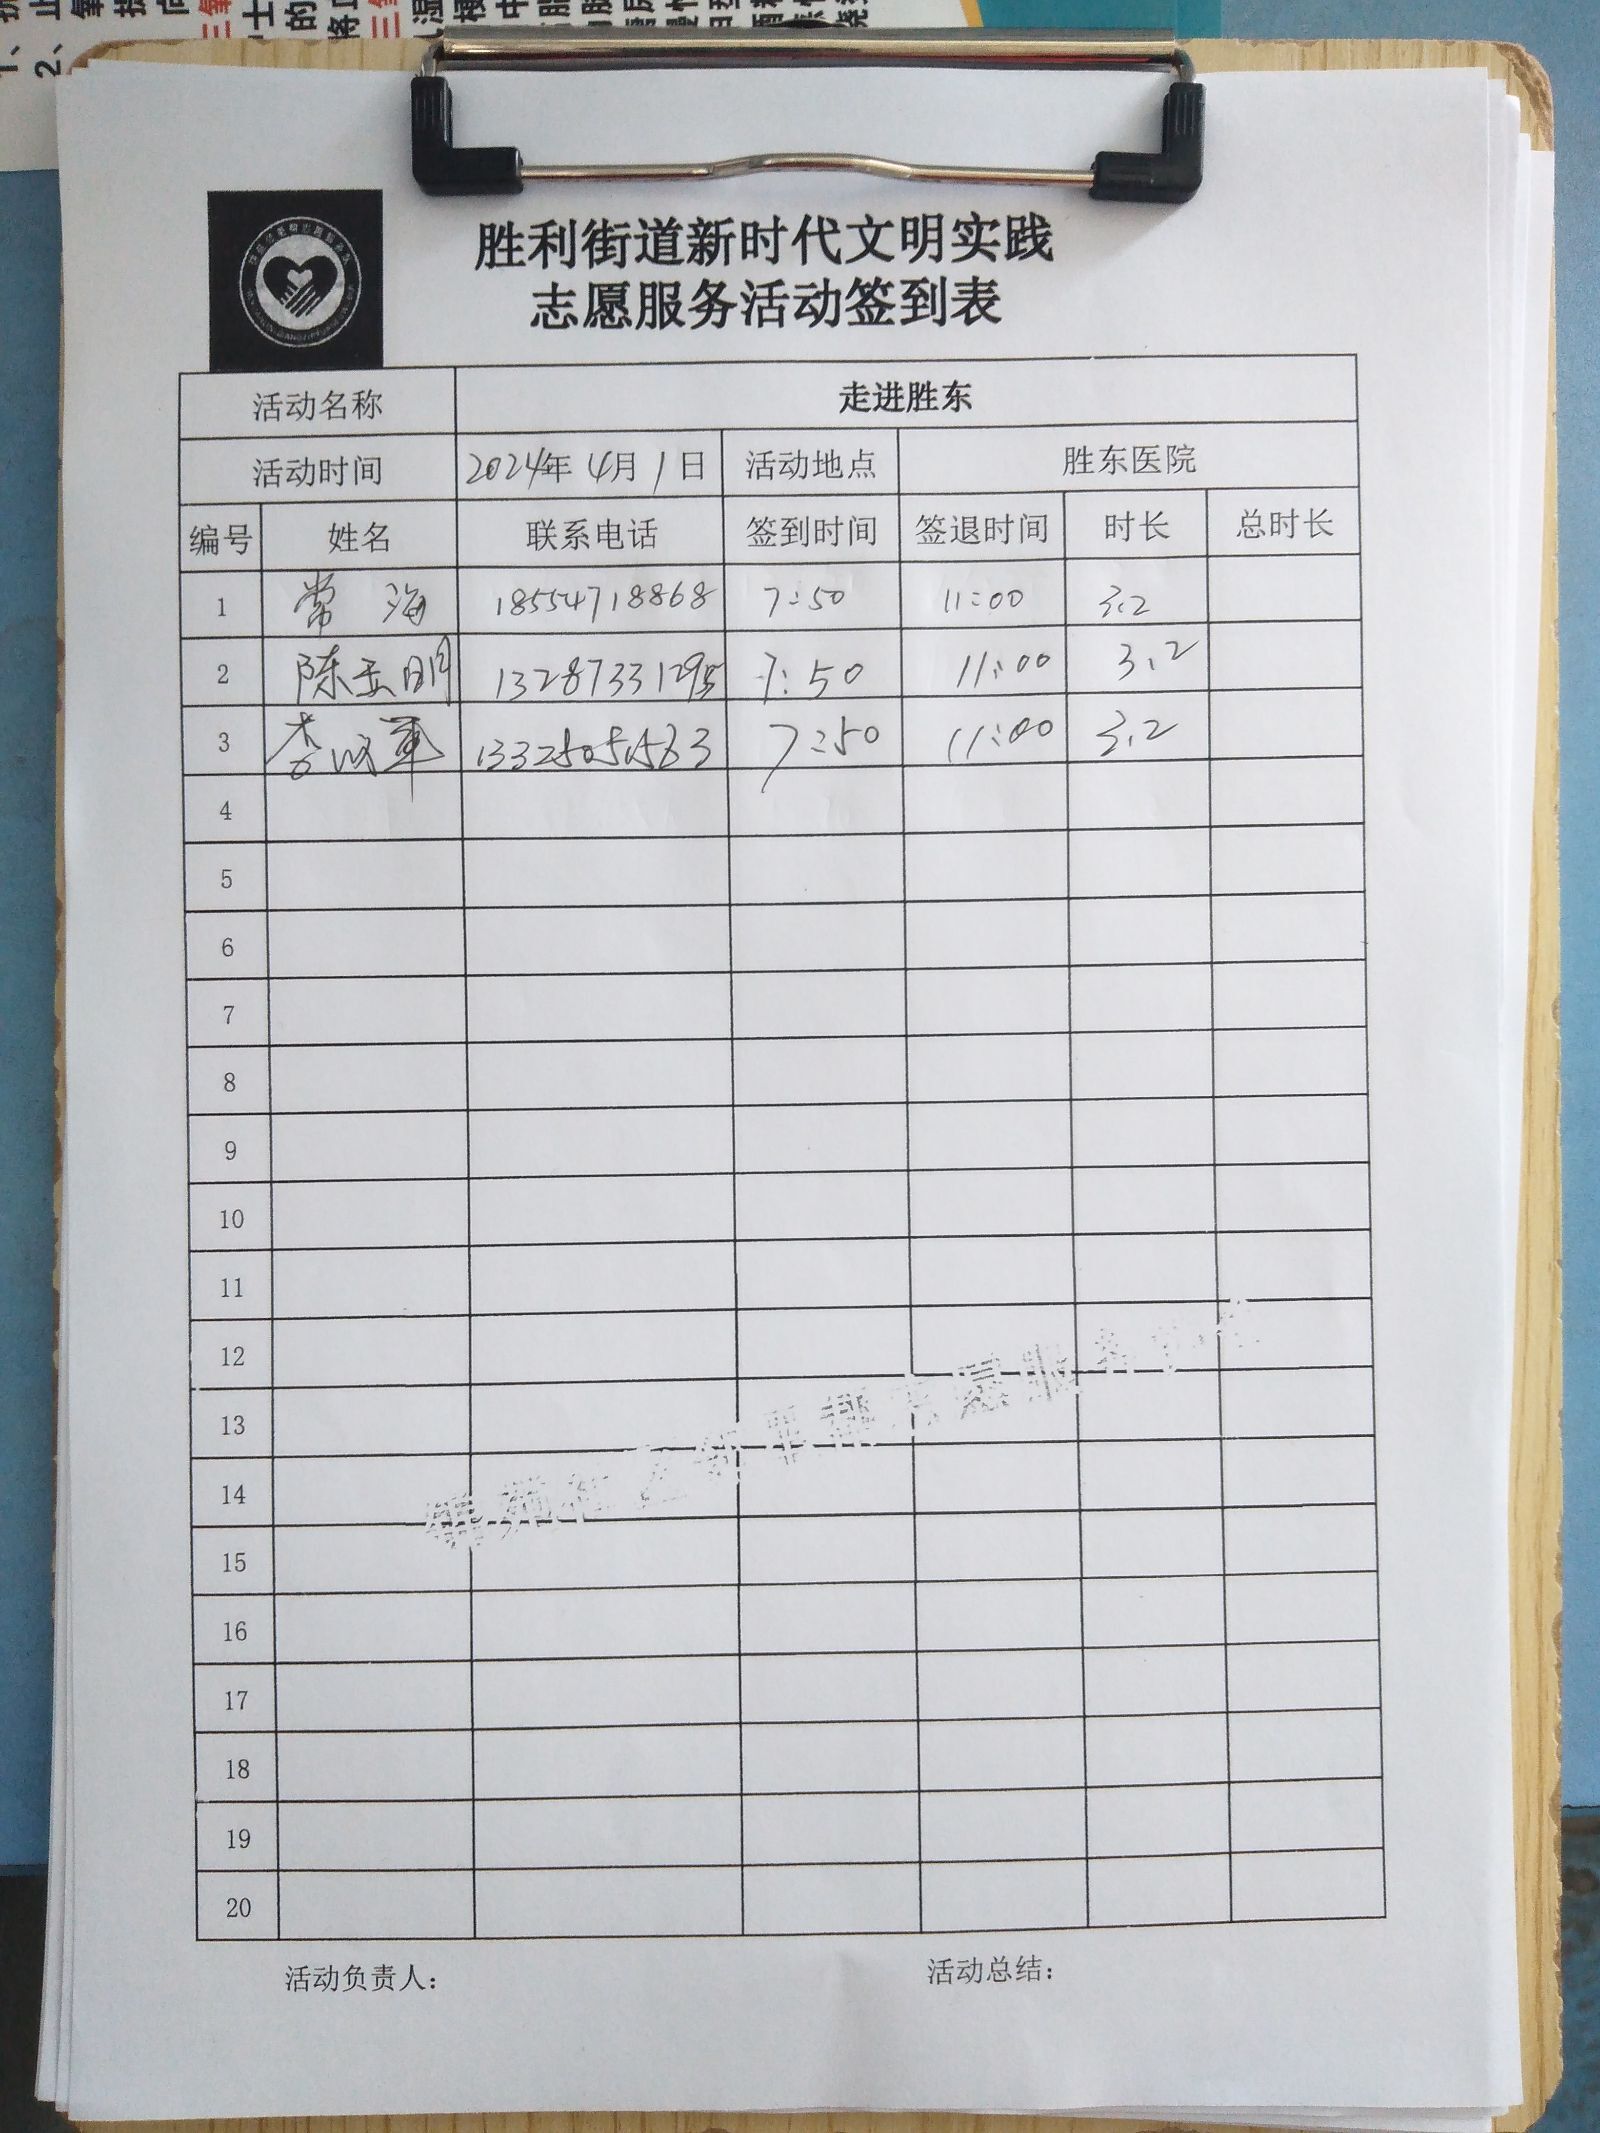 胜利街道新时代文明实践
志愿服务活动签到表
活动名称 走进胜东
活动时间 2024年 4月 1日 活动地点 胜东医院
编号 姓名 联系电话 签到时间 签退时间 时长 总时长
1 常海 18554718868 7:50 11:00 3.2
2 陈玉明 13287331295 7:50 11:00 3.2
3 李 军 13325051563 7:50 11:00 3.2
4
5
6
7
8
9
10
11
12
13
14
15
16
17
18
19
20
活动负责人: 活动总结: